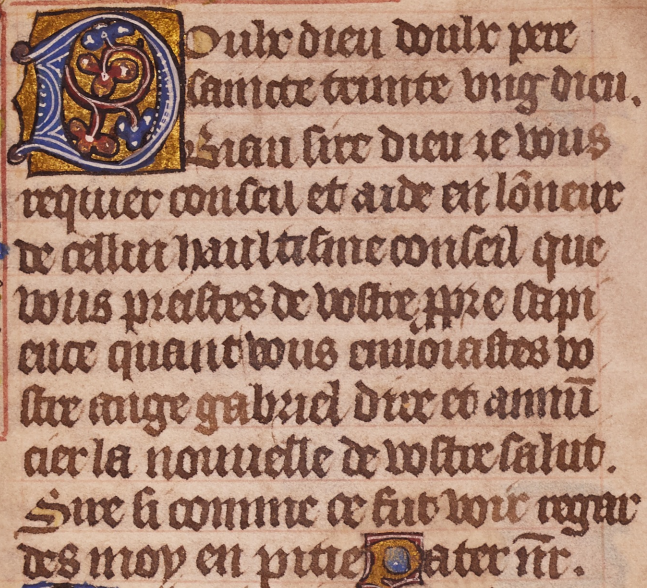 Doulx dieu doulx pere
saincte trinite vng dieu.
Biau sire dieu ie vous
requier conseil et aide en lōneur
de cellui haultisme conseil que
vous preistes de vostre ꝓpre sapi
ence quant vous enuoiastes vo
stre ange gabriel dire et annū
cier la nouuelle de vostre salut.
Sire si comme ce fut voir regar
des moy en pitie Pater nr̄.